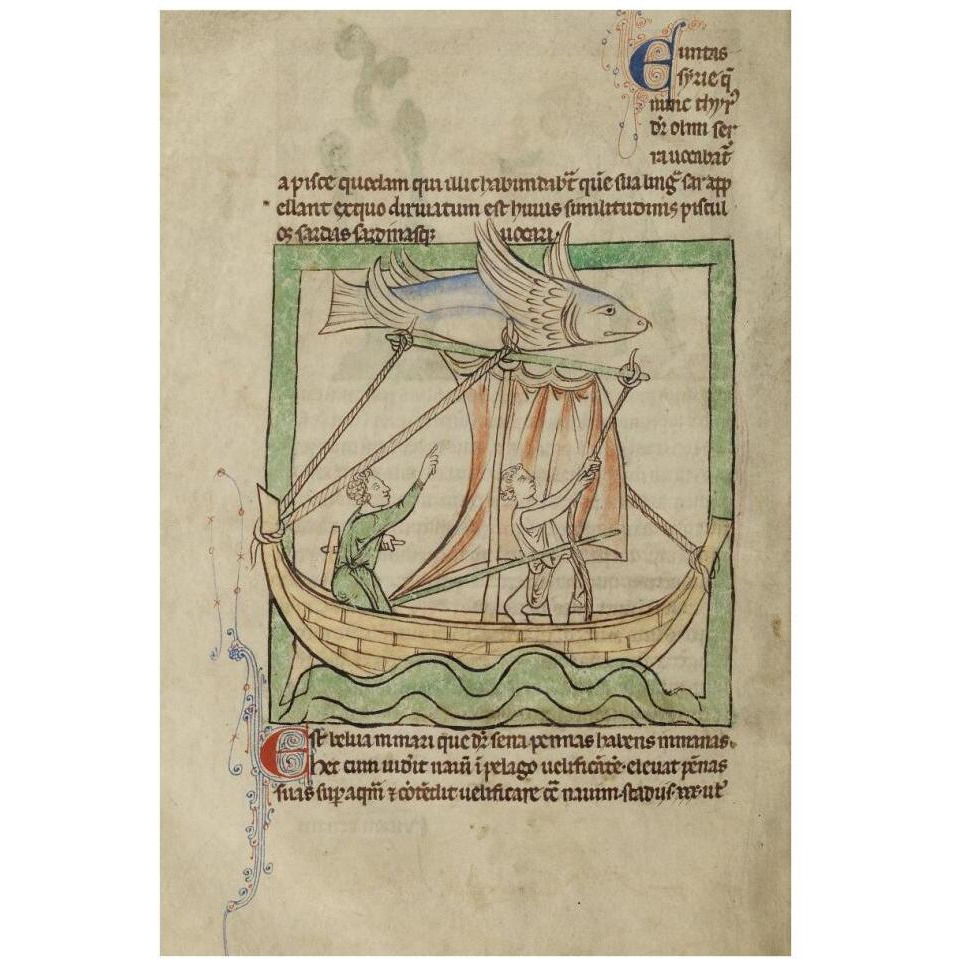 Ciuitas
syrie q̄
nunc thyr᾽
dr̄ olim ser
ra uocabat̄
a pisce quodam qui illic habundabt̄ quē sua ling̃ sar app
ellant ex quo diriuatum est huius similitudinis piscul
os sardas sardinasq; uocari.
Est belua in mari que dr̄ serra pennas habens inmanas.
hec cum uidit nauī ī pelago uelificātē. eleuat pēnas
suas sup aq̄m ⁊ cōtēdit uelificare cē nauim. stadijs. xxx. ut᾽